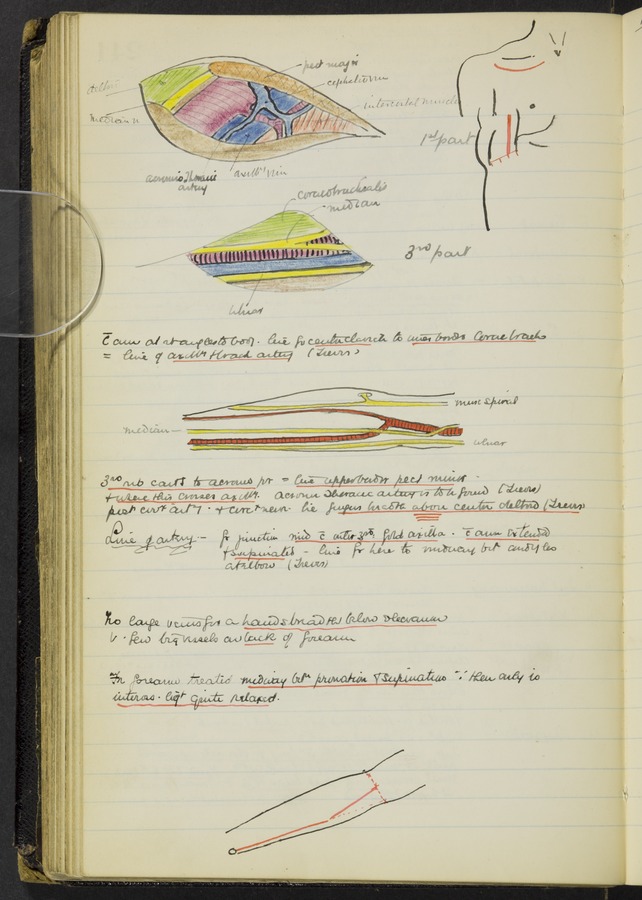 pect major
cephalic vein
deltoid
intercostal muscle
median n.
1st part
acromio thoracic artery
axillʸ vein
coracobrachialis
median
3rd part
ulnar
c̄ arm at rt angles to body. line fr centre clavicle to inner border Coraco brachs
= line of axillʸ & brach artery (Treves)
musc spiral
median
ulnar
3rd rib cart to acromⁿ pr = line upper border pect minor.
& where this crosses axillʸ. acrom thoracic artery is to be found (Treves)
post circ artʸ. & circ nerve lie finger breadth above centre deltoid (Treves)
Line of artery - fr junction mid c̄ outer 3rd, fold axilla. c̄ arm extended
& supinated - line fr here to midway btⁿ condyles
at elbow (Treves)
No large veins for a hands breadth below olecranon
V. few big vessels on back of forearm
Fr. forearm treated midway btⁿ pronation & supination ∵ then only is
inteross. ligt quite relaxed.